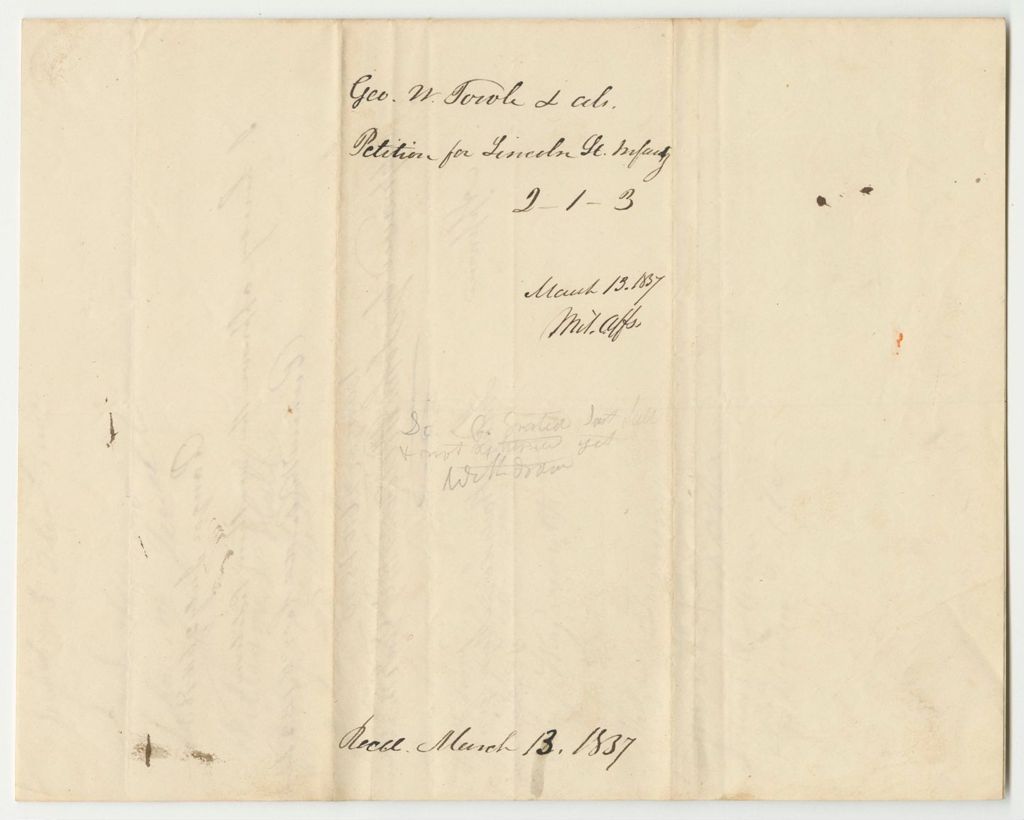 Geo. W. Towle & als.
Petition for Lincoln Lt. Infanty
2-1-3
March 13. 1837
Mil. Affs.
granted last
& not yet
withdrawn
Recd. March 13. 1837